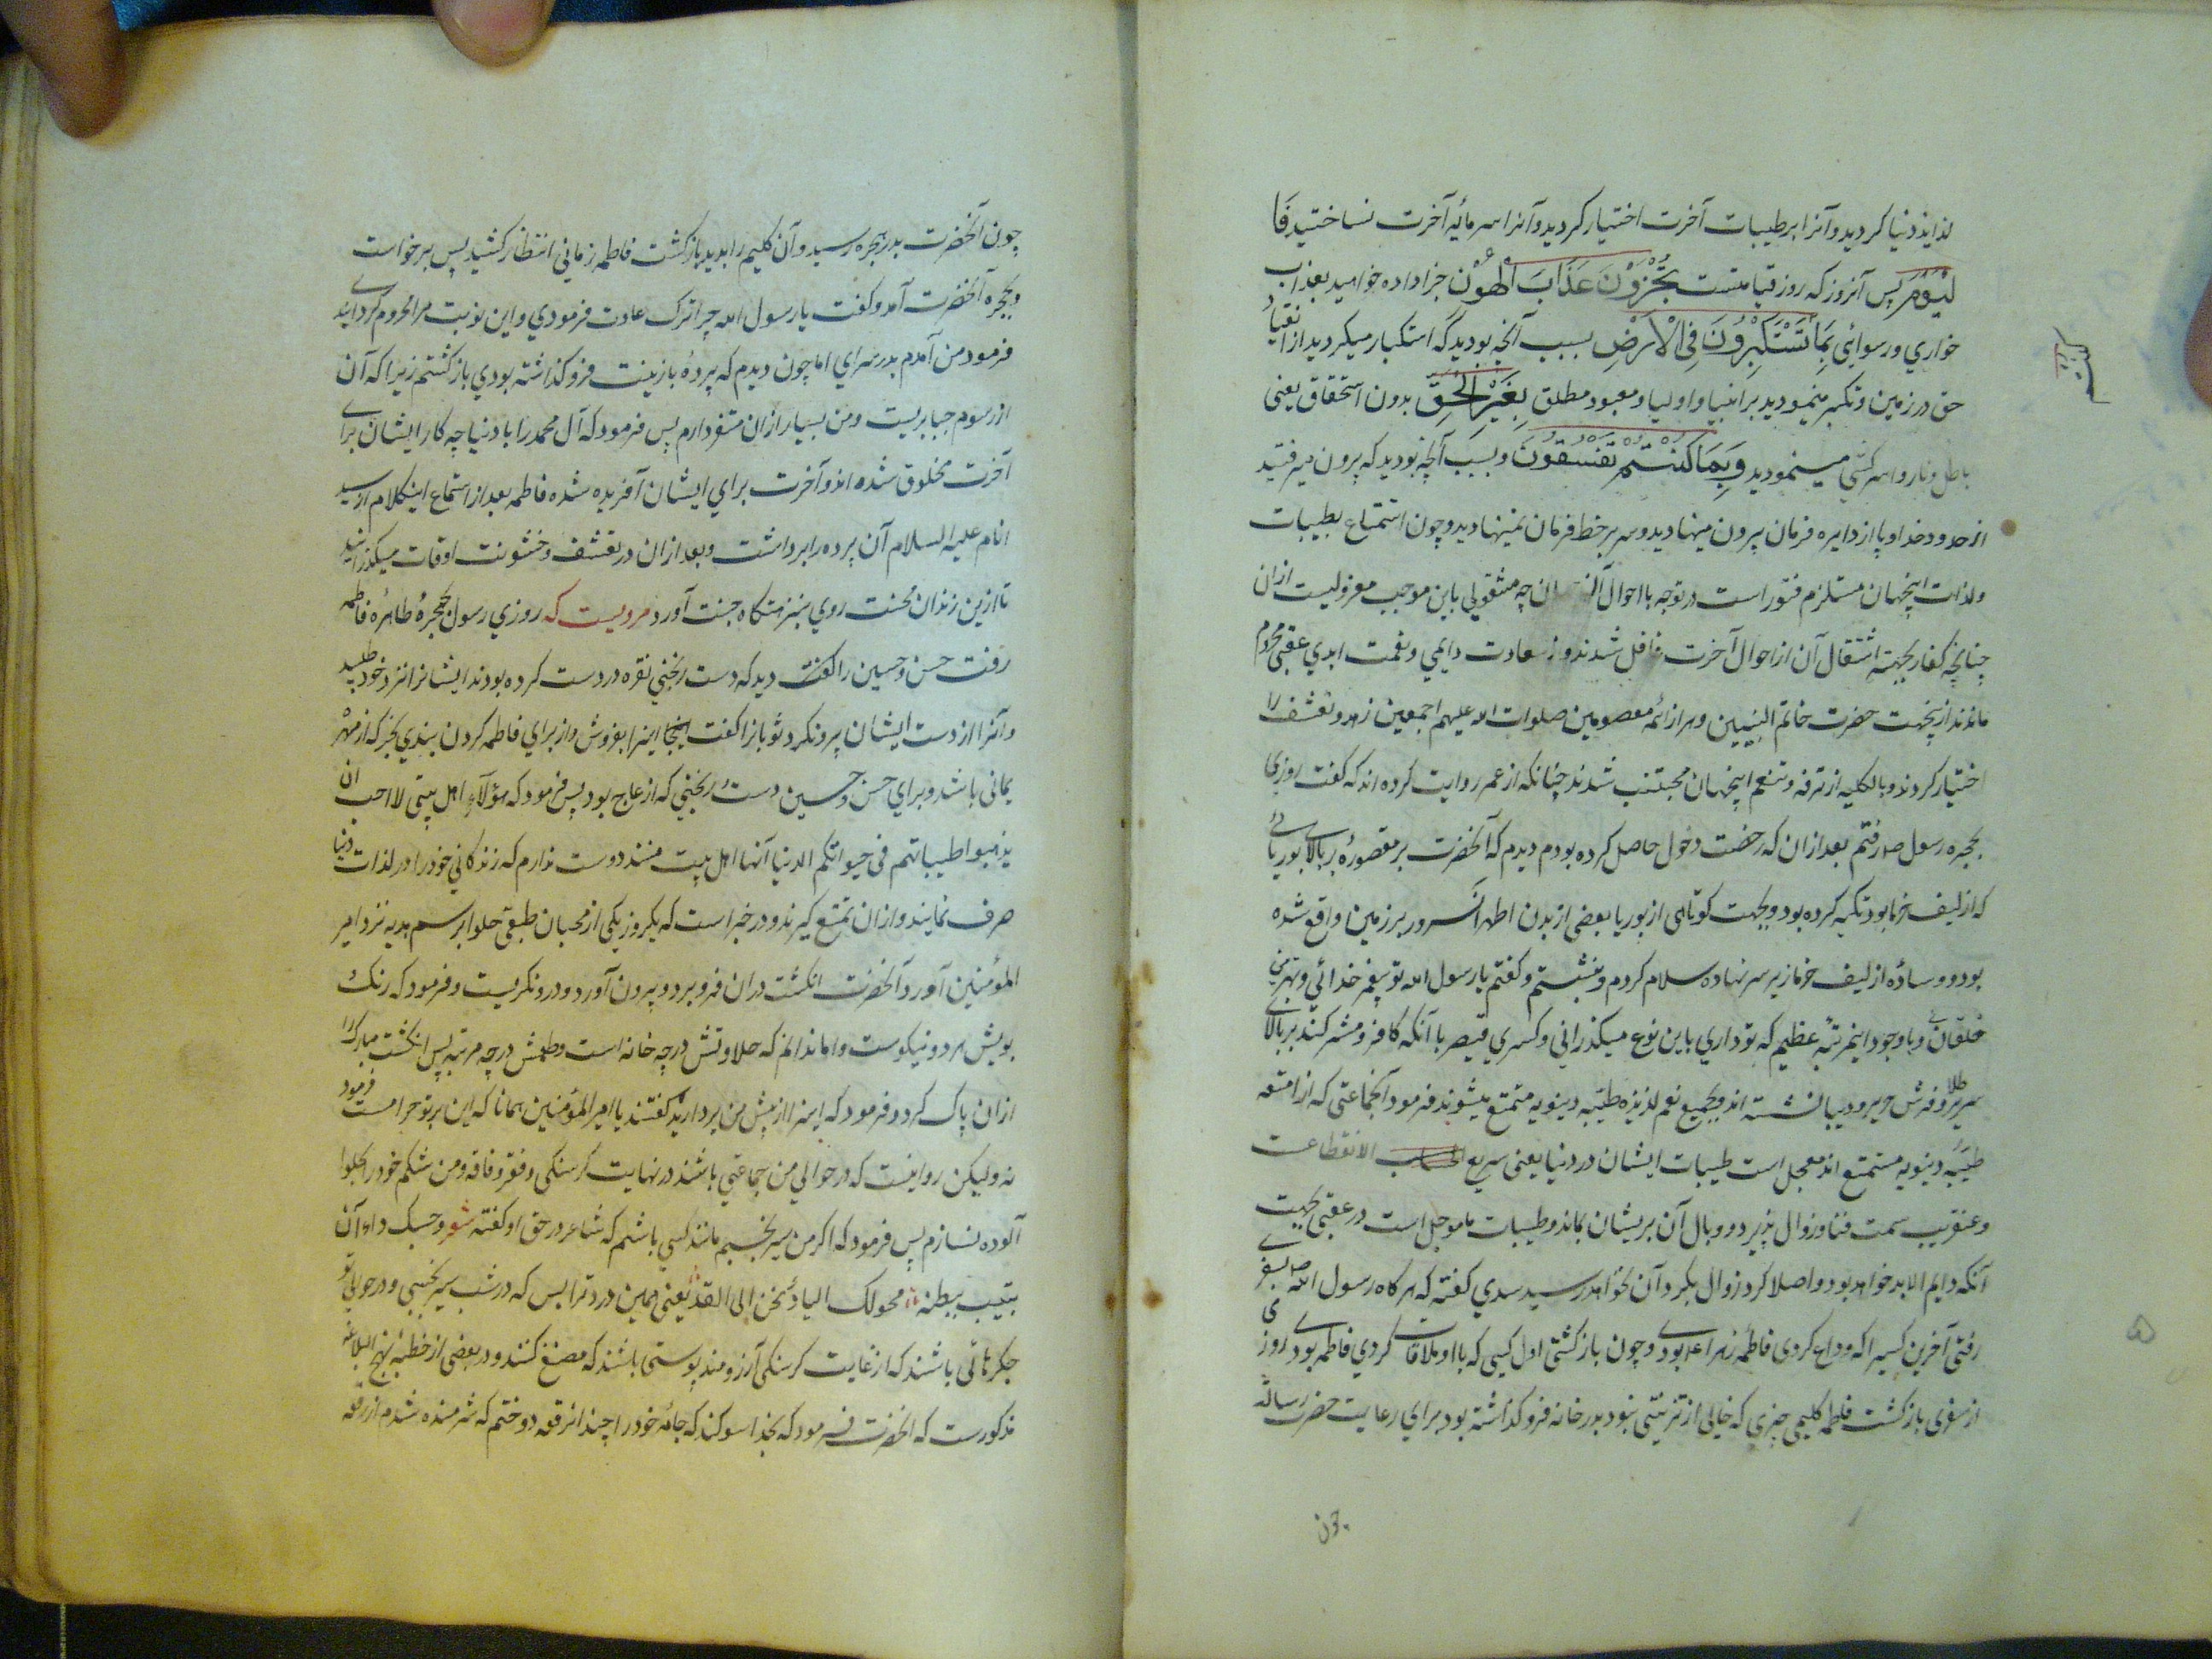 لذایذ دنیا کردید و آنرا بر طیبات آخرت اختیار کردید و آنرا سرمایه آخرت نساختید فَا
لْیَوْمَ پس آنروز که روز قیامتست تُجْزَوْنَ عَذَابَ الْهُوْنِ جزا داده خواهید بعذاب
خواری و رسوایی بِمَا تَسْتَکْبِرُونَ فِی الْاَرْضِ بسبب آنچه بودید که استکبار میکردید از انقیاد
حق در زمین و تکبر مینمودید بر انبیا و اولیا و معبود مطلق بِغَیْرِ الْحَقِّ بدون استحقاق یعنی
باطل و ناروا سرکشی مینمودید وَبِمَا کُنْتُمْ تَفْسُقُوْنَ و بسبب آنچه بودید که بیرون میرفتید
از حدود خدا و پا از دایره فرمان بیرون مینهادید و سر بر خط فرمان نمینهادید و چون استمتاع بطیبات
ولذات اینجهان مستلزم فتور است در توجه با احوال چه مشغولی باین موجب معزولیست از ان
چنانچه کفار بجهته اشتغال آن از احوال آخرت غافل شدند و از سعادت دایمی و نعمت ابدی عقبی محروم
ماندند ازینجهت حضرت خاتم النبیین و هر از ائمه معصومین صلوات الله علیهم اجمعین زهد و تقشف را
اختیار کردند و بالکلیه از ترفه و تنعم اینجهان مجتنب شدند چنانکه از عمر روایت کرده اند که گفت روزی
بحجره رسول ص رفتم بعد از ان که رخصت دخول حاصل کرده بودم دیدم که آنحضرت بر مقصوره بر بالای بوریائی
که از لیف خرما بود تکیه کرده بود و بجهت کوتاهی از بوریا بعضی از بدن اطهر آنسرور بر زمین واقع شده
بود و وساده از لیف خرما زیر سر نهاده سلام کردم و بنشستم و گفتم یا رسول الله تو پیغمبر خدائی و بهترین
خلقان و با وجود اینمرتبه عظیم که تو داری باین نوع میگذرانی و کسری و قیصر با آنکه کافر و مشرکند بر بالای
سریر طلا و فرش حریر و دیبا نشسته اند و بجمیع نعم لذیذه طیبه دنیویه متمتع میشوند فرمود آنجماعتی که از امتعه
طیبه دنیویه مستمتع اند معجل است طیبات ایشان در دنیا یعنی سریع الانقطاعست
و عنقریب سمت فنا و زوال پذیرد و وبال آن بریشان بماند و طیبات ما موجل است در عقبی بجهت
آنکه دایم الابد خواهد بود و اصلا گرد زوال بگرد آن نخواهد رسید سدی گفته که هر گاه رسول الله ص بسفری
رفتی آخرین کسیرا که وداع کردی فاطمه زهرا ع بودی و چون باز گشتی اول کسی که با او ملاقات کردی فاطمه بودی روزی
از سفری باز گشت فاطمه گلیمی خیبری که خالی از تزیینی نبود بدر خانه فرو گذاشته بود برای رعایت حضرت رسالة
چون آنحضرت بدر حجره رسید و آن گلیم را بدید باز گشت فاطمه زمانی انتظار کشید پس برخواست
و بحجره آنحضرت آمد و گفت یا رسول الله چرا ترک عادت فرمودی و این نوبت مرا محروم گردانیدی
فرمود من آمدم بدر سرای اما چون دیدم که پرده بازینت فرو گذاشته بودی باز گشتم زیرا که آن
از رسوم جبابریست و من بسیار ازان متنفر دارم پس فرمود که آل محمد را با دنیا چه کار ایشان برای
آخرت مخلوق شده اند و آخرت برای ایشان آفریده شده فاطمه بعد از استماع اینکلام از سید
انام علیه السلام آن پرده را برداشت و بعد ازان در تقشف و خشونت اوقات میگذرانید
تا ازین زندان محنت روی بنزهتگاه جنت آورد مرویست که روزی رسول بحجرهٔ طاهرهٔ فاطمه
رفت حسن و حسین را دید که دست رنجنی نقره در دست کرده بودند ایشانرا نزد خود طلبید
و آنرا از دست ایشان بیرونکرد ثوبانرا گفت اینرا بفروش و از برای فاطمه گردن بندی بخر که از مهره
یمانی باشد و برای حسن و حسین دست رنجنی که از عاج بود پس فرمود که هؤلآء اهل بیتی لا احب ان
یذهبوا طیباتهم فی حیواتکم الدنیا آنها اهل بیت منند دوست ندارم که زندگانی خود را در لذات دنیا
صرف نمایند و ازان تمتع گیرند و در خبر است که یکروز یکی از محبان طبقی حلوا برسم هدیه نزد امیر
المؤمنین آورد و آنحضرت انگشت دران فرو برد و بیرون آورد و درو نگریست و فرمود که رنگ
بویش هر دو نیکوست و اما ندانم که حلاوتش درچه خانه است و طعمش درچه مرتبه پس انگشت مبارک را
ازان پاک کرد و فرمود که اینرا از پیش من بردارید گفتند یا امیر المؤمنین همانا که این برتو حرامست فرمود
نه ولیکن روا نیست که در حوالی من جماعتی باشند در نهایت گرسنگی و فقر و فاقه و من شکم خود را بحلوا
آلوده نسازم پس فرمود که اگر من سیر بخسبم مانند کسی باشم که شاعر در حق او گفته شعر و حسبک داء آن
تبیت ببطنه وحولک اکباد تحن الی القد یعنی همین درد ترا بس که در شب سیر بخسبی و در حوالی تو
جگرهائی باشند که از غایت گرسنگی آرزومند پوستی باشند که مضغ کنند و در بعضی از خطبه نهج البلاغه
مذکورست که انحضرت فرمود که بخدا سوگند که جامه خود را چندان رقعه دوختم که شرمنده شدم از رقعه